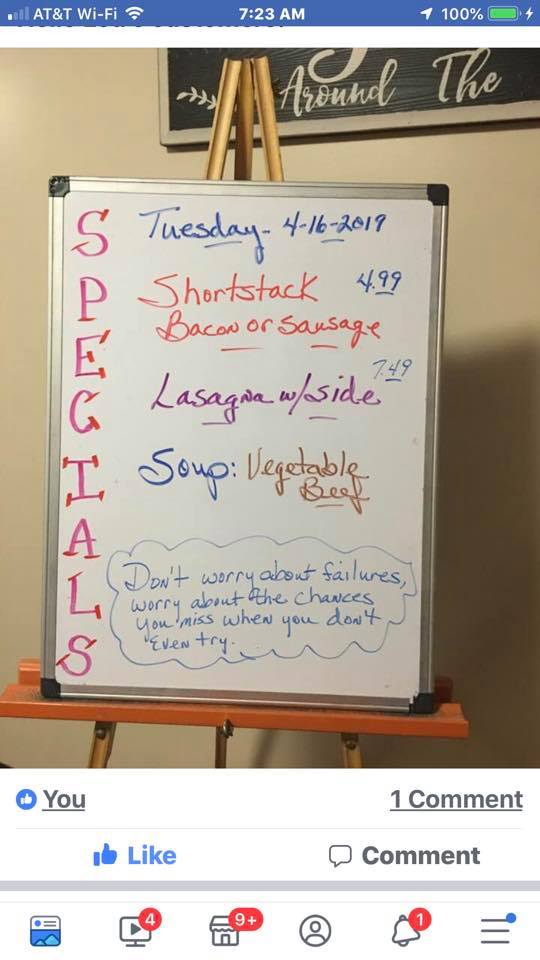 AT&T Wi-Fi 7:23 AM 100%
Around The
SPECIALS
Tuesday - 4-16-2019
Shortstack 4.99
Bacon or Sausage
7.49
Lasagna w/side
Soup: Vegetable
Beef
Don't worry about failures,
worry about the chances
you miss when you don't
even try.
You 1 Comment
Like Comment
4 9+ 1